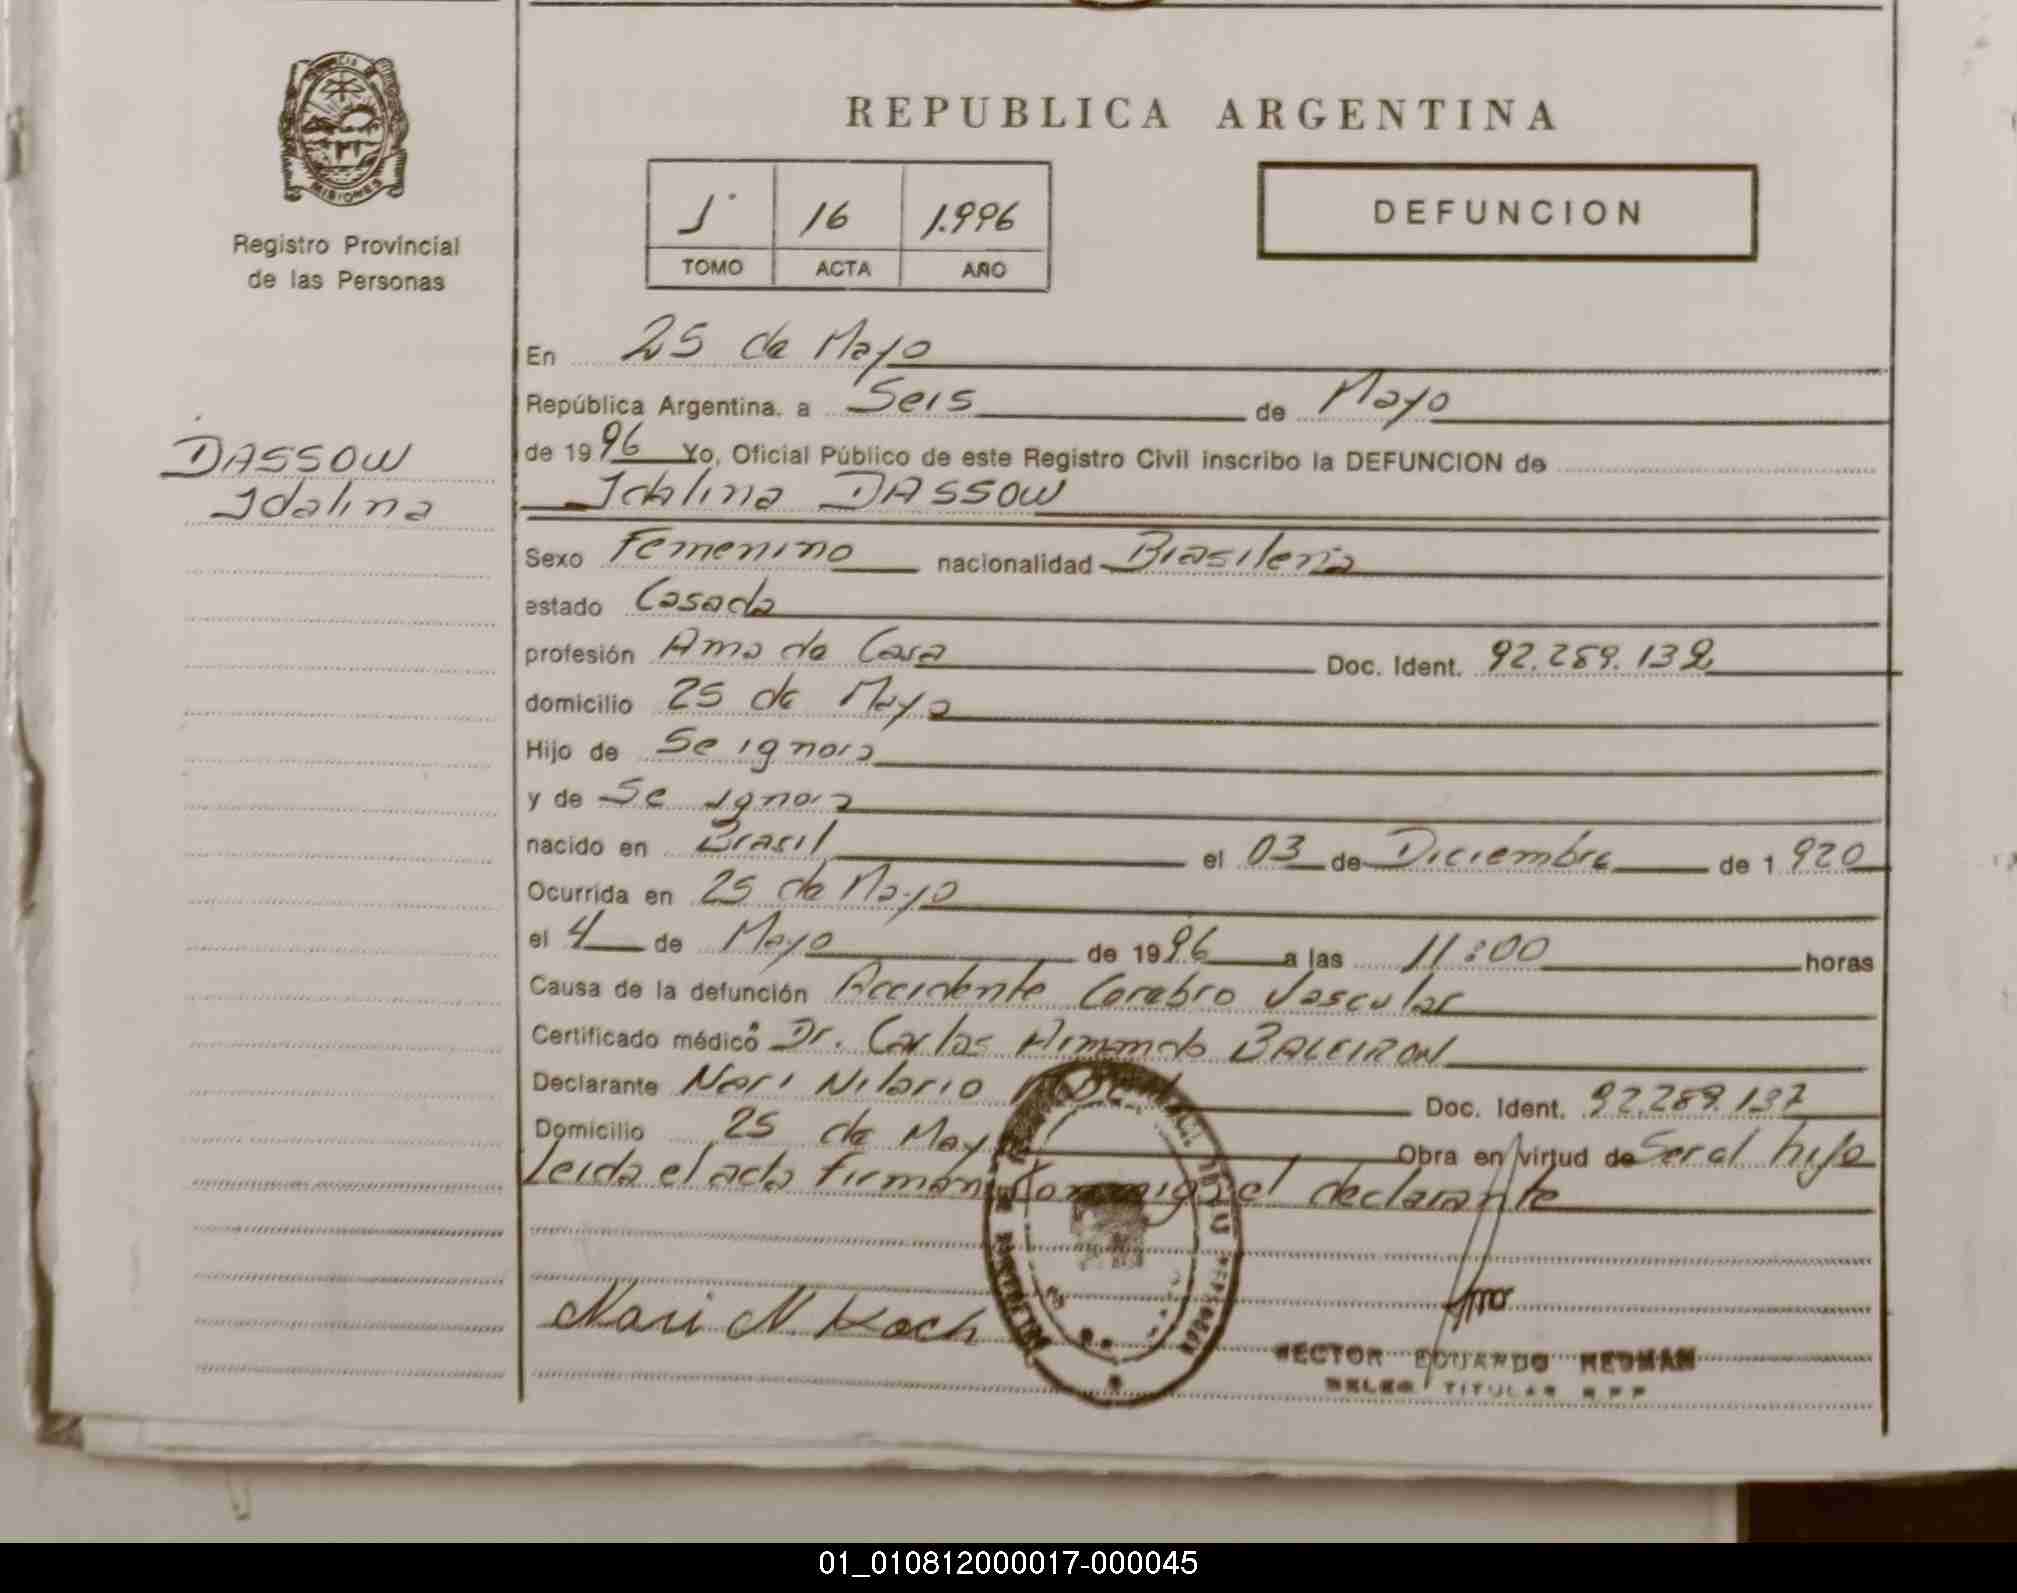 REPUBLICA ARGENTINA
MISIONES
Registro Provincial
de las Personas
1º 16 1.996
TOMO ACTA AÑO
DEFUNCION
DASSOW
Idalina
En 25 de Mayo
República Argentina, a Seis de Mayo
de 1996 Yo, Oficial Público de este Registro Civil inscribo la DEFUNCION de
Idalina DASSOW
Sexo Femenino nacionalidad Brasileña
estado Casada
profesión Ama de Casa Doc. Ident. 92.289.132
domicilio 25 de Mayo
Hijo de Se ignora
y de Se ignora
nacido en Brasil el 03 de Diciembre de 1920
Ocurrida en 25 de Mayo
el 4 de Mayo de 1996 a las 11:00 horas
Causa de la defunción Accidente Cerebro Vascular
Certificado médico Dr. Carlos Armando BALEIRON
Declarante Nari Nilario Doc. Ident. 92.289.137
Domicilio 25 de Mayo Obra en virtud de Ser el hijo
Leida el acta firman conmigo el declarante
Nari N. Koch
HECTOR EDUARDO NEUMAN
DELEG. TITULAR R.P.P.
01_010812000017-000045